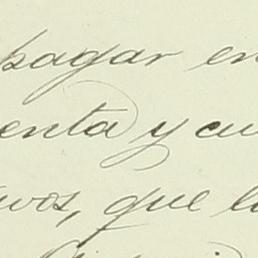 pagar en
enta y cu
vos, que l